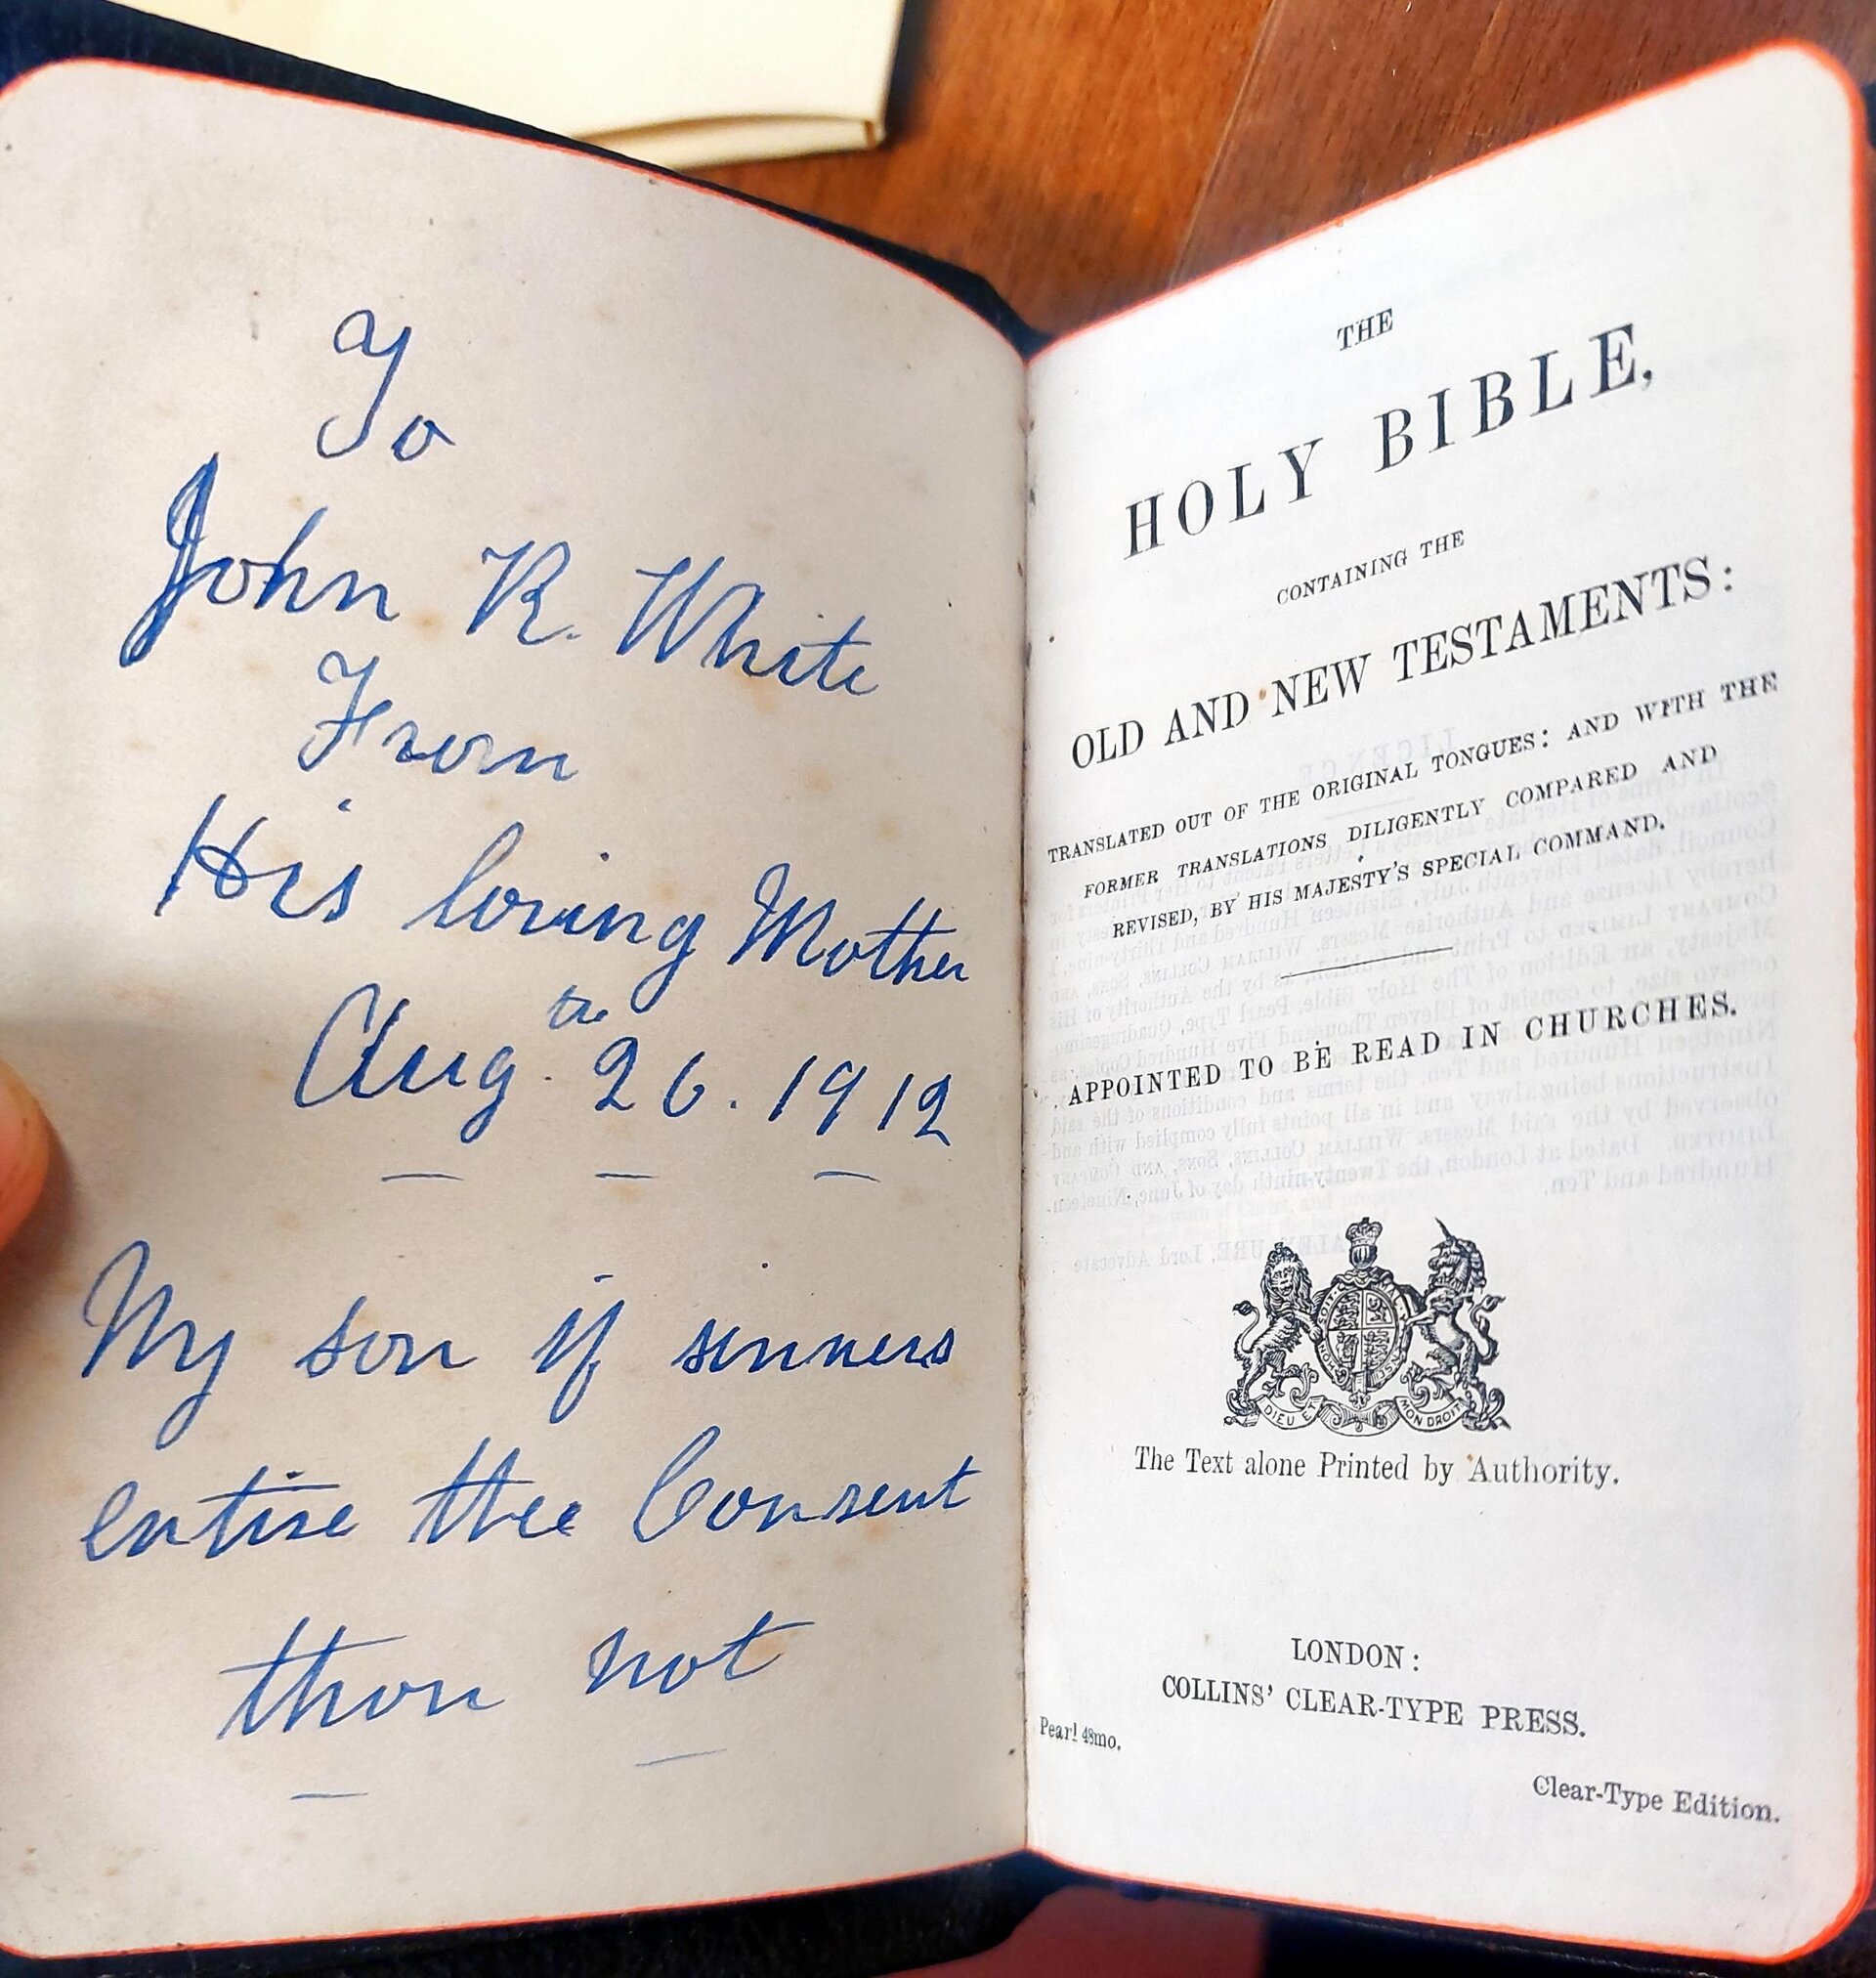 To
John R. White
From
His loving Mother
Aug. 26th. 1912
My son if sinners
entise thee Consent
thou not
THE
HOLY BIBLE,
CONTAINING THE
OLD AND NEW TESTAMENTS:
TRANSLATED OUT OF THE ORIGINAL TONGUES: AND WITH THE
FORMER TRANSLATIONS DILIGENTLY COMPARED AND
REVISED, BY HIS MAJESTY'S SPECIAL COMMAND.
APPOINTED TO BE READ IN CHURCHES.
DIEU ET MON DROIT
The Text alone Printed by Authority.
LONDON:
COLLINS' CLEAR-TYPE PRESS.
Pearl 48mo.
Clear-Type Edition.